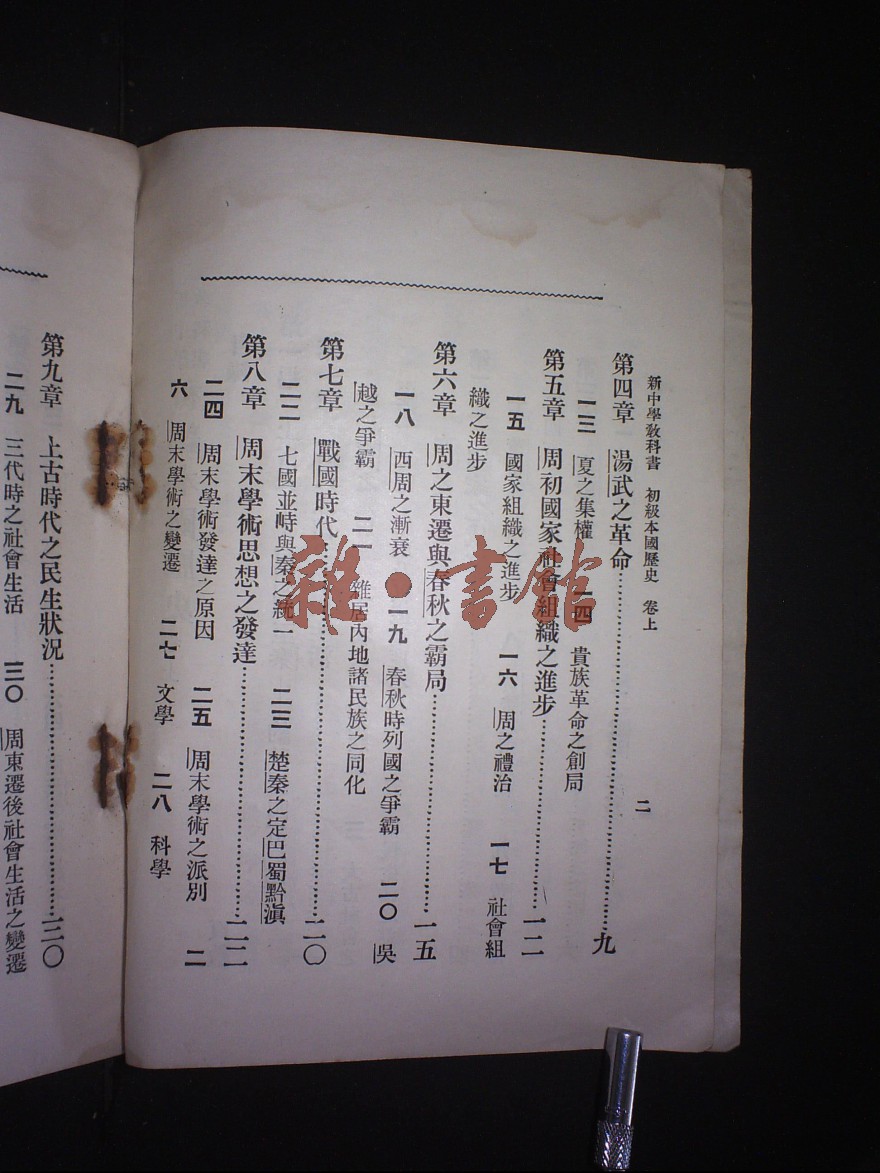 新中學教科書　初級本國歷史　卷上
二
第四章　湯武之革命……………………九
一三　夏之集權　一四　貴族革命之創局
第五章　周初國家社會組織之進步……………………一二
一五　國家組織之進步　一六　周之禮治　一七　社會組
織之進步
第六章　周之東遷與春秋之霸局……………………一五
一八　西周之漸衰　一九　春秋時列國之爭霸　二〇　吳
越之爭霸　二一　雜居內地諸民族之同化
第七章　戰國時代……………………二〇
二二　七國並峙與秦之統一　二三　楚秦之定巴蜀黔滇
第八章　周末學術思想之發達……………………二二
二四　周末學術發達之原因　二五　周末學術之派別　二
六　周末學術之變遷　二七　文學　二八　科學
第九章　上古時代之民生狀況……………………三〇
二九　三代時之社會生活　三〇　周東遷後社會生活之變遷
雜·書館